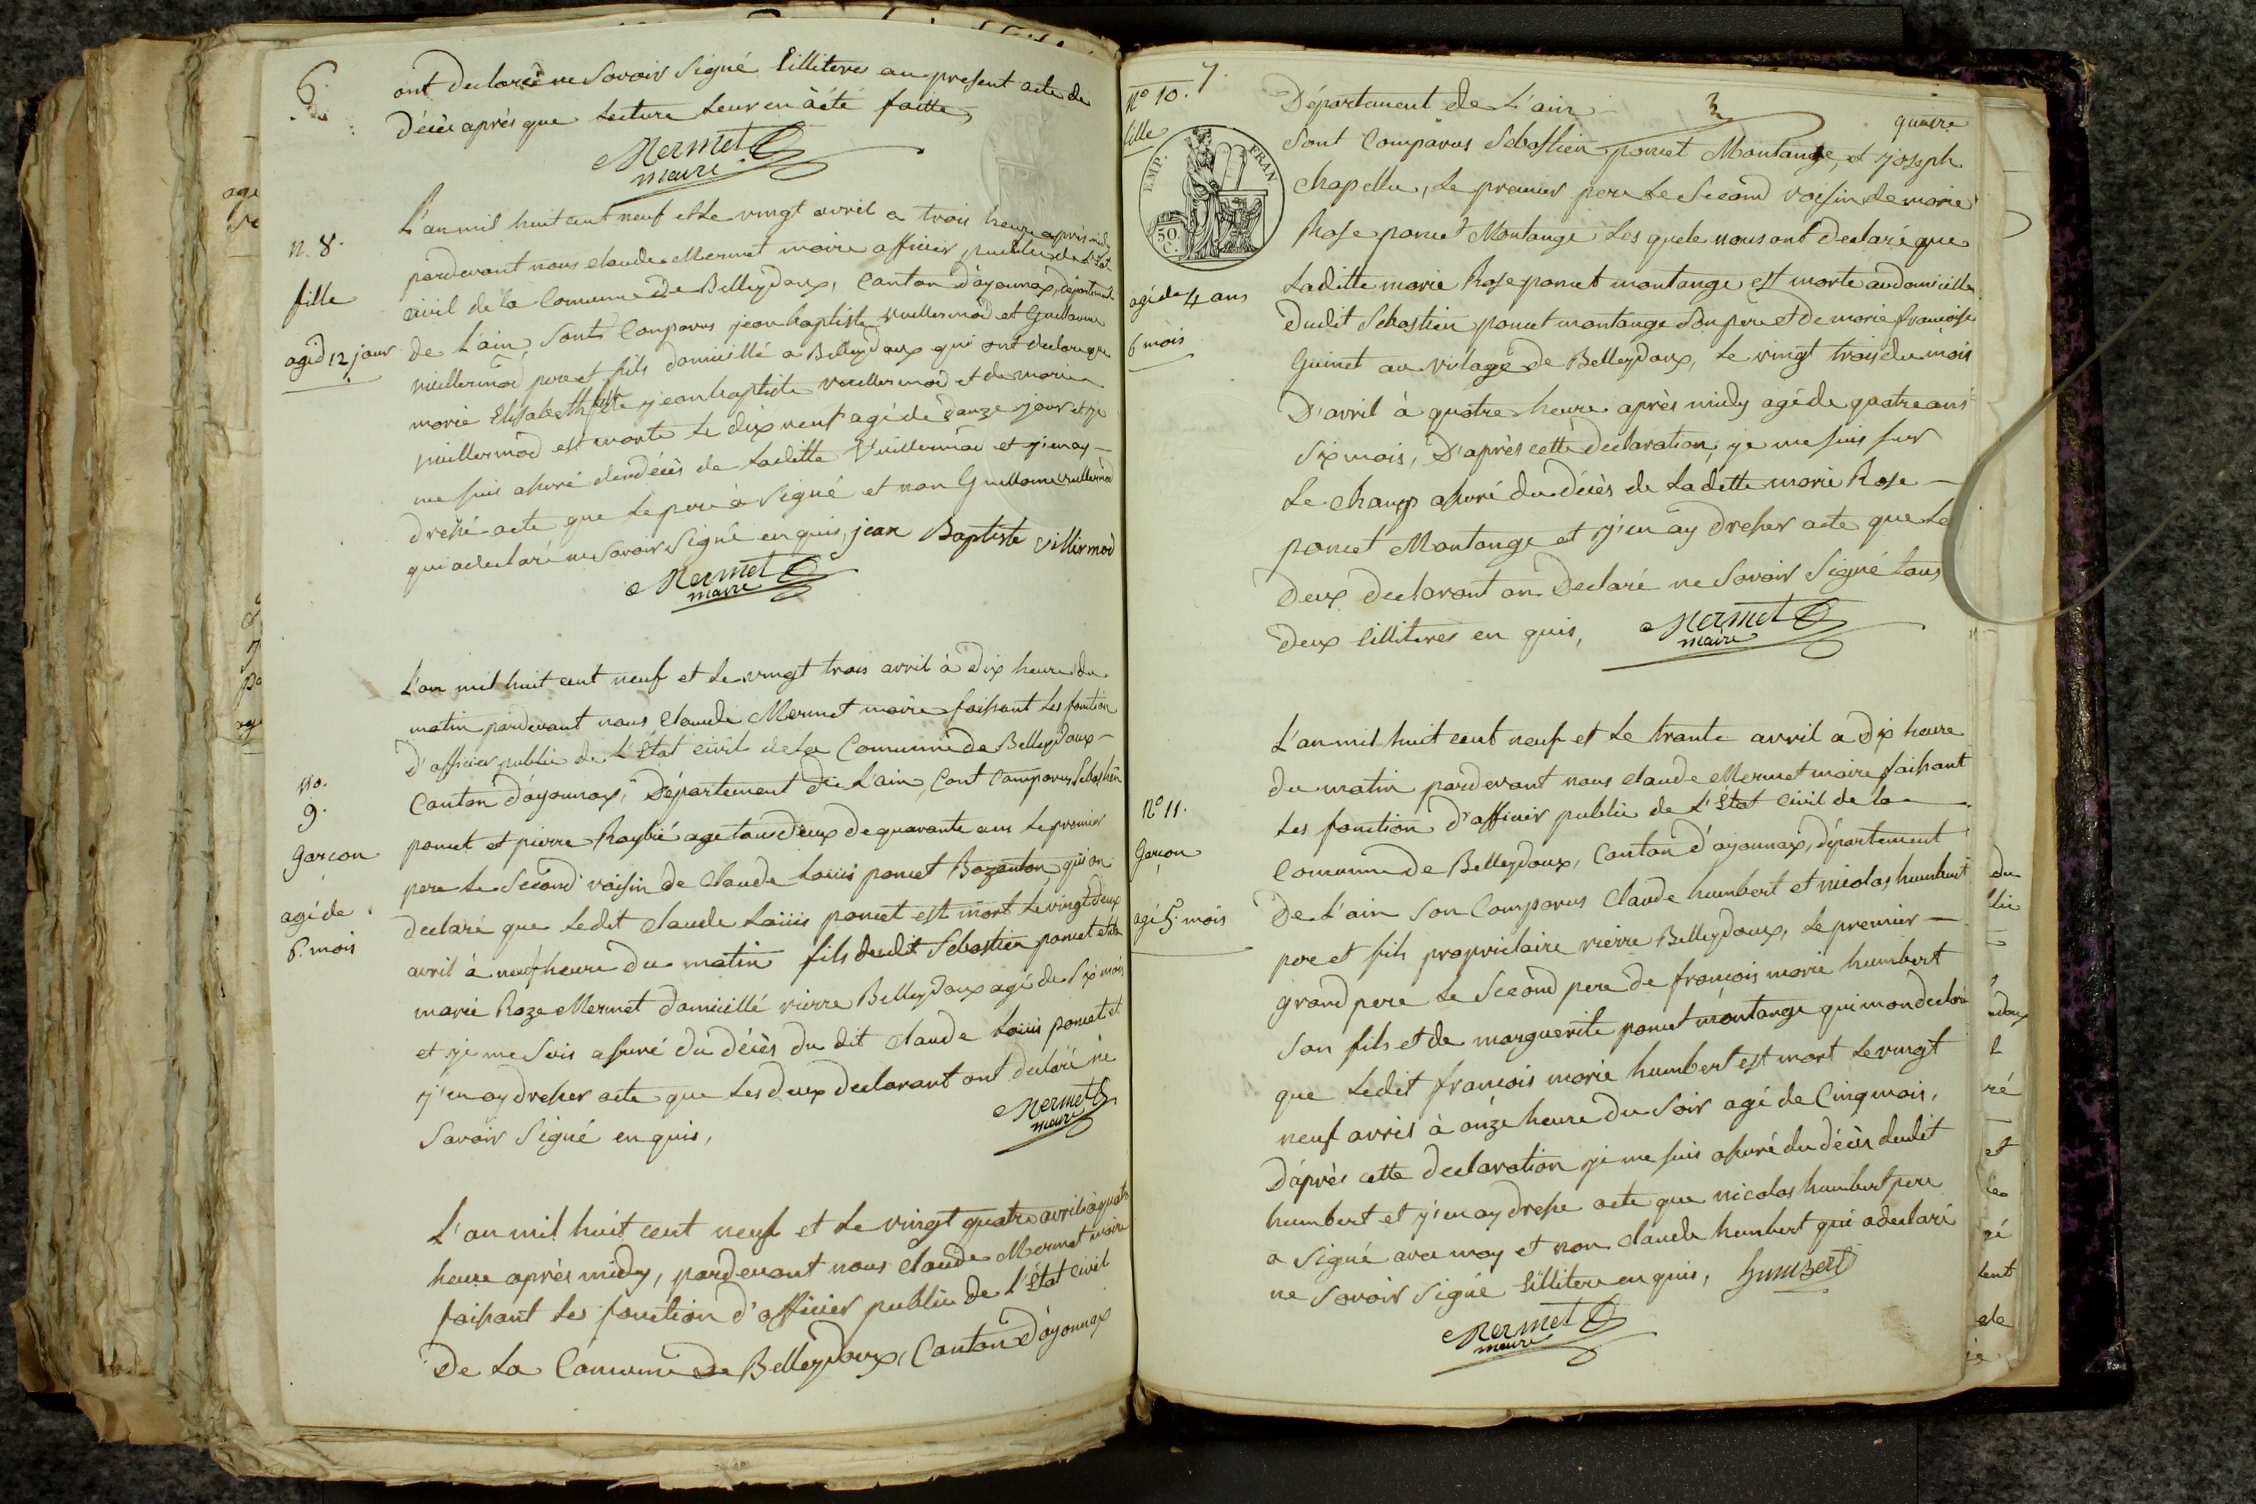 6
ont declaré ne savoir Signé Lilliteres au present acte de
Décès après que Lecture Leur en à été faitte,
Mermet
maire
N. 8.
fille
agé d 12 jour
L'an mil huit cent neuf et Le vingt avril a trois heure après midy
pardevant nous claude Mermet maire officier publice de L'Etat
civil de la Comune de Belleydoux, Canton d'ayonnax, département
de Lain, sont Comparus jean baptiste vuillermod et Guillaume
vuillermod pere et fils domicillé a Belleydoux qui ont declaré que
marie Elisabeth fille jean baptiste vuillermod et de marie
vuillermod est morte Le dix neuf agé de douze jour et je
me suis assuré du décès de Laditte Vuillermod et j'en ay
dressé acte que Le pere à Signé et non Guillome vuillermod
qui a declaré ne savoir Signé en quis, jean Baptiste Villermod
Mermet
maire
no.
9.
garcon
agé de
6. mois
L'an mil huit cent neuf et Le vingt trois avril à Dix heure du
matin pardevant nous Claude Mermet maire faissant Les fonction
D'officier public de L'État civil de La Comune de Belleydoux
Canton d'ayonnax, Département de L'ain, Cont Comparus Sebastien
poncet et pierre Raybié age tous deux de quarante ans Le premier
pere Le Second voisin de Claude Louis poncet Bozonton, qui on
declaré que Ledit claude Louis poncet est mort Le vingt deux
avril à neuf heure du matin fils dudit Sebastien poncet et de
marie Roze Mermet domicillé rierre Belleydoux agé de Six mois
et je me Suis assuré du décès du dit claude Louis poncet et
j'en ay dresser acte que Les deux declarant ont declaré ne
Savoir Signé en quis,
Mermet
maire
L'an mil huit cent neuf et Le vingt quatre avril à quatre
heure après midy, pardevant nous claude Mermet maire
faissant Les fonction d'officier public de L'État civil
De La Comune de Belleydoux, Canton D'ayonnax
7.
No 10.
fille
EMP. FRAN
50
C.
agé de 4 ans
6 mois
3
quatre
Département de L'ain
Sont Comparus Sebastien poncet Montange, et joseph
Chapellu, Le premier pere Le Second voisin de marie
Rose poncet Montange Les quels nous ont declaré que
Laditte marie Rose poncet montange est morte au domicille
dudit Sebastien poncet montange Son pere et de marie francoise
Guinet au vilage de Belleydoux, Le vingt trois du mois
D'avril à quatre heure après midy agé de quatre ans
Six mois, D'après cette declaration, je me suis sur
Le champ assuré du décès de Laditte marie Rose
poncet Montange et j'en ay dresser acte que Le
Deux declarant on Declaré ne Savoir Signé tous
Deux Lilliteres en quis,
Mermet
maire
No 11.
Garçon
agé 5. mois
L'an mil huit cent neuf et Le trante avril a Dix heure
du matin pardevant nous claude Mermet maire faissant
Les fonction d'officier public de L'État Civil de la
Comune de Belleydoux, Canton d'ayonnax, département
De L'ain Son Comparus Claude humbert et nicolas humbert
pere et fils proprietaire rierre Belleydoux, Le premier
grand pere Le Second pere de francois marie humbert
Son fils et de marguerite poncet montange qui mon declaré
que Ledit francois marie humbert est mort Le vingt
neuf avril à onze heure du Soir agé de Cinq mois,
D'après cette declaration je me suis assuré du décès dudit
humbert et j'en ay dresse acte que nicolas humbert pere
a Signé avec moy et non claude humbert qui a declaré
ne Savoir Signé Lillitere en quis, humbert
Mermet
maire